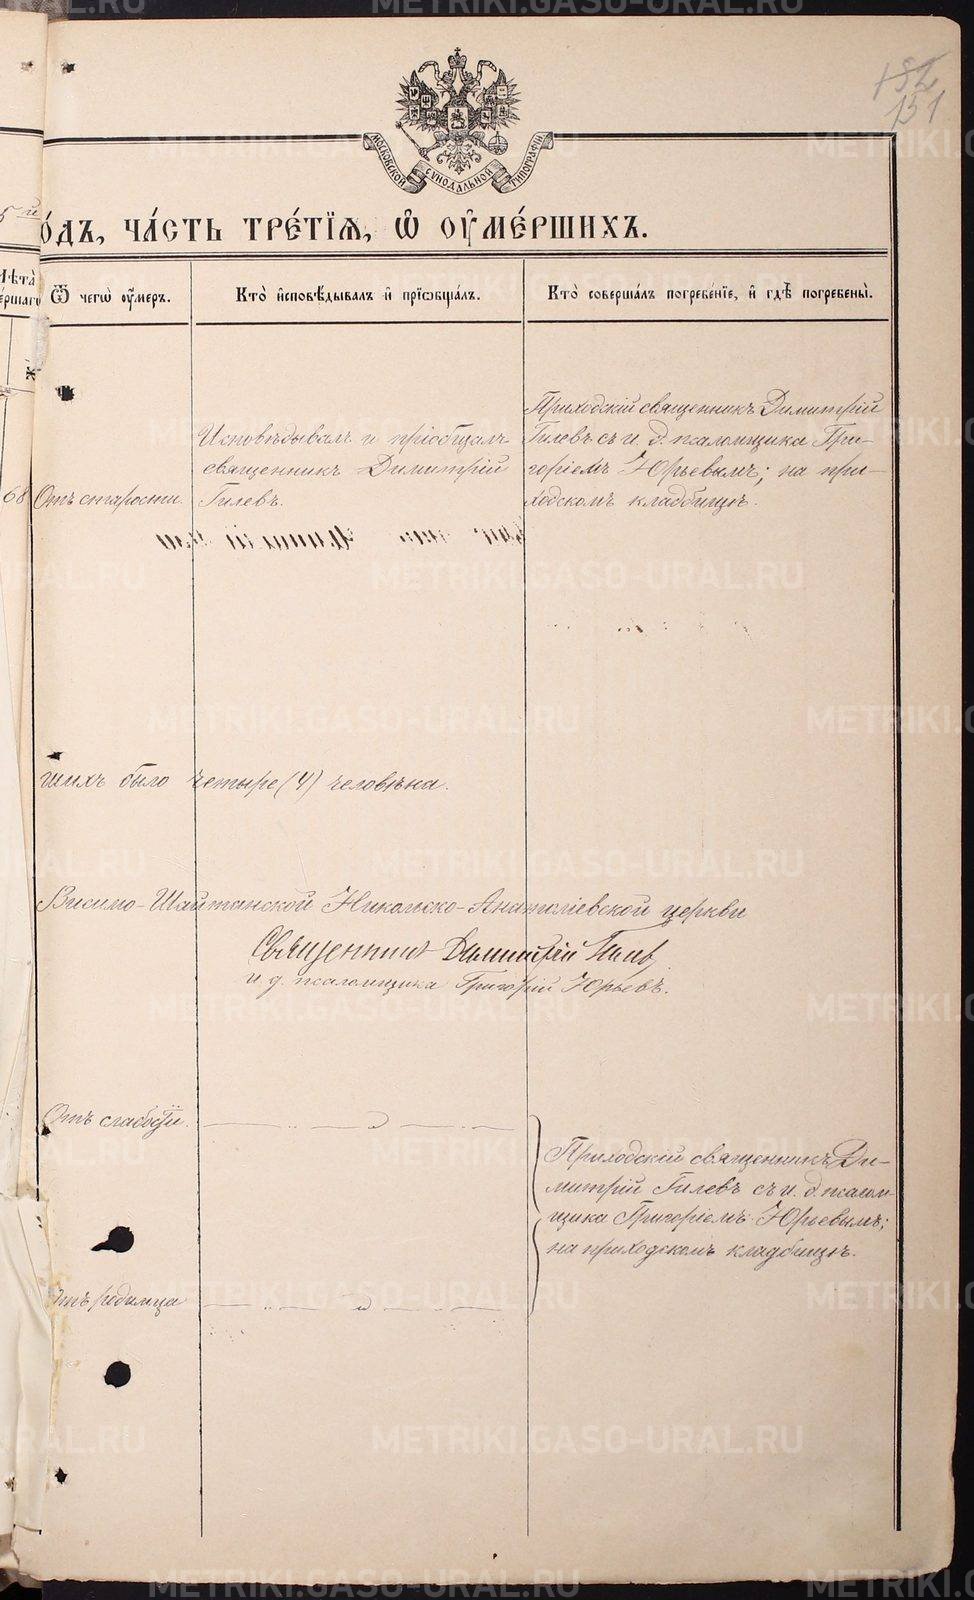 182
131
МОСКОВСКОЙ СУНОДАЛЬНОЙ ТИПОГРАФІИ
5й
о́дъ, ча́сть тре́тїѧ, ѡ҆ оу҆ме́ршихъ.
Лѣта
Ѿ чегѡ̀ оу҆́меръ.
Кто̀ и҆сповѣ́дывалъ и҆ прїѡбща́лъ.
Кто̀ соверша́лъ погребе́нїе, и҆ гдѣ̀ погребены̀.
ж
Исповѣдывалъ и пріобщалъ
священникъ Димитрій
Гилевъ.
Приходскій священникъ Димитрій
Гилевъ съ и. д. псаломщика Гри-
горіемъ Юрьевымъ; на при-
ходскомъ кладбищѣ.
68
Отъ старости
шихъ было четыре (4) человѣка.
Висимо-Шайтанской Николаско-Анатоліевской церкви
Священникъ Димитрій Гилевъ
и д. псаломщика Григорій Юрьевъ.
Отъ слабости
Приходскій священникъ Ди-
митрій Гилевъ съ и. д. псалом-
щика Григоріемъ Юрьевымъ;
на приходскомъ кладбищѣ.
Отъ родимца
METRIKI.GASO-URAL.RU